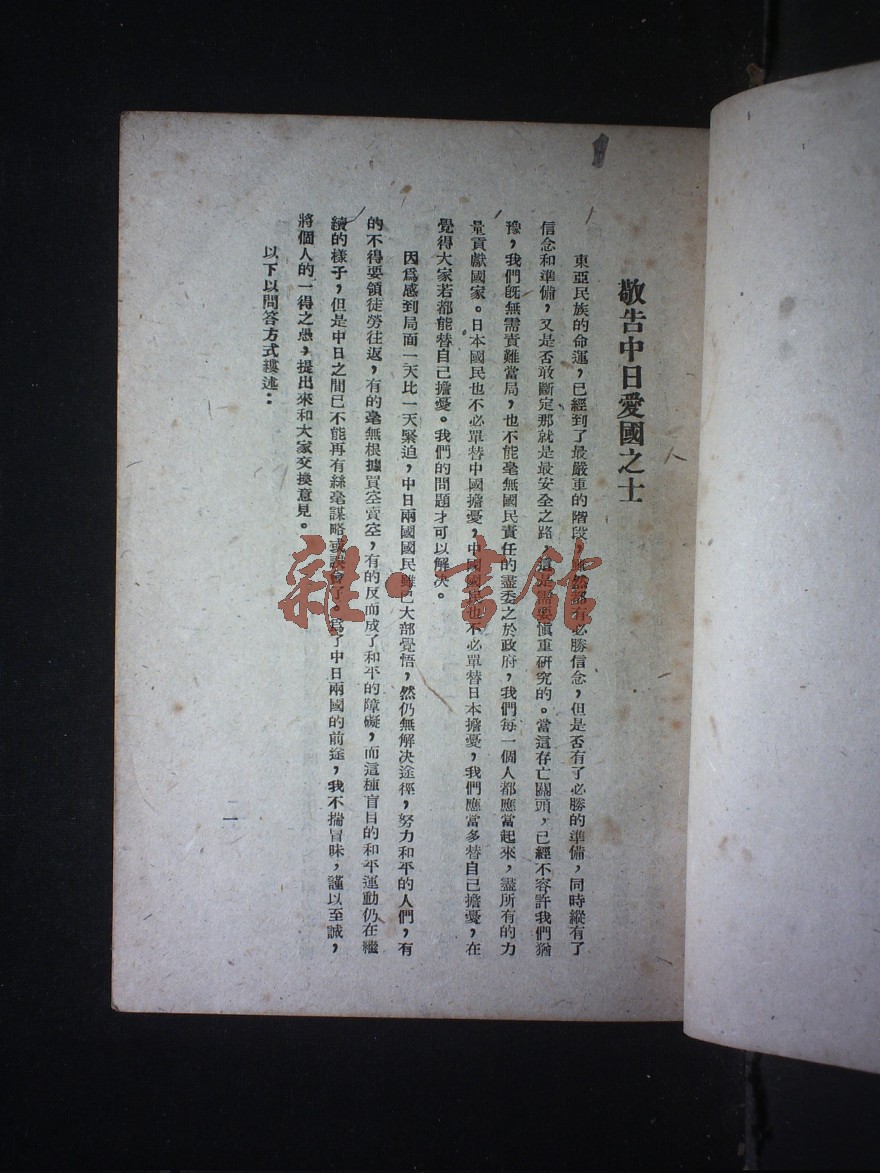 敬告中日愛國之士
東亞民族的命運，已經到了最嚴重的階段，雖然都有必勝信念，但是否有了必勝的準備，同時縱有了
信念和準備，又是否敢斷定那就是最安全之路，這是需要慎重研究的。當這存亡關頭，已經不容許我們猶
豫，我們旣無需責難當局，也不能毫無國民責任的盡委之於政府，我們每一個人都應當起來，盡所有的力
量貢獻國家。日本國民也不必單替中國擔憂，中國國民也不必單替日本擔憂，我們應當多替自己擔憂，在
覺得大家若都能替自己擔憂。我們的問題才可以解决。
因爲感到局面一天比一天緊迫，中日兩國國民雖已大部覺悟，然仍無解决途徑，努力和平的人們，有
的不得要領徒勞往返，有的毫無根據買空賣空，有的反而成了和平的障礙，而這種盲目的和平運動仍在繼
續的樣子，但是中日之間已不能再有絲毫謀略或誤會了。爲了中日兩國的前途，我不揣冒昧，謹以至誠，
將個人的一得之愚，提出來和大家交換意見。
以下以問答方式縷述：
二一
雜·書館